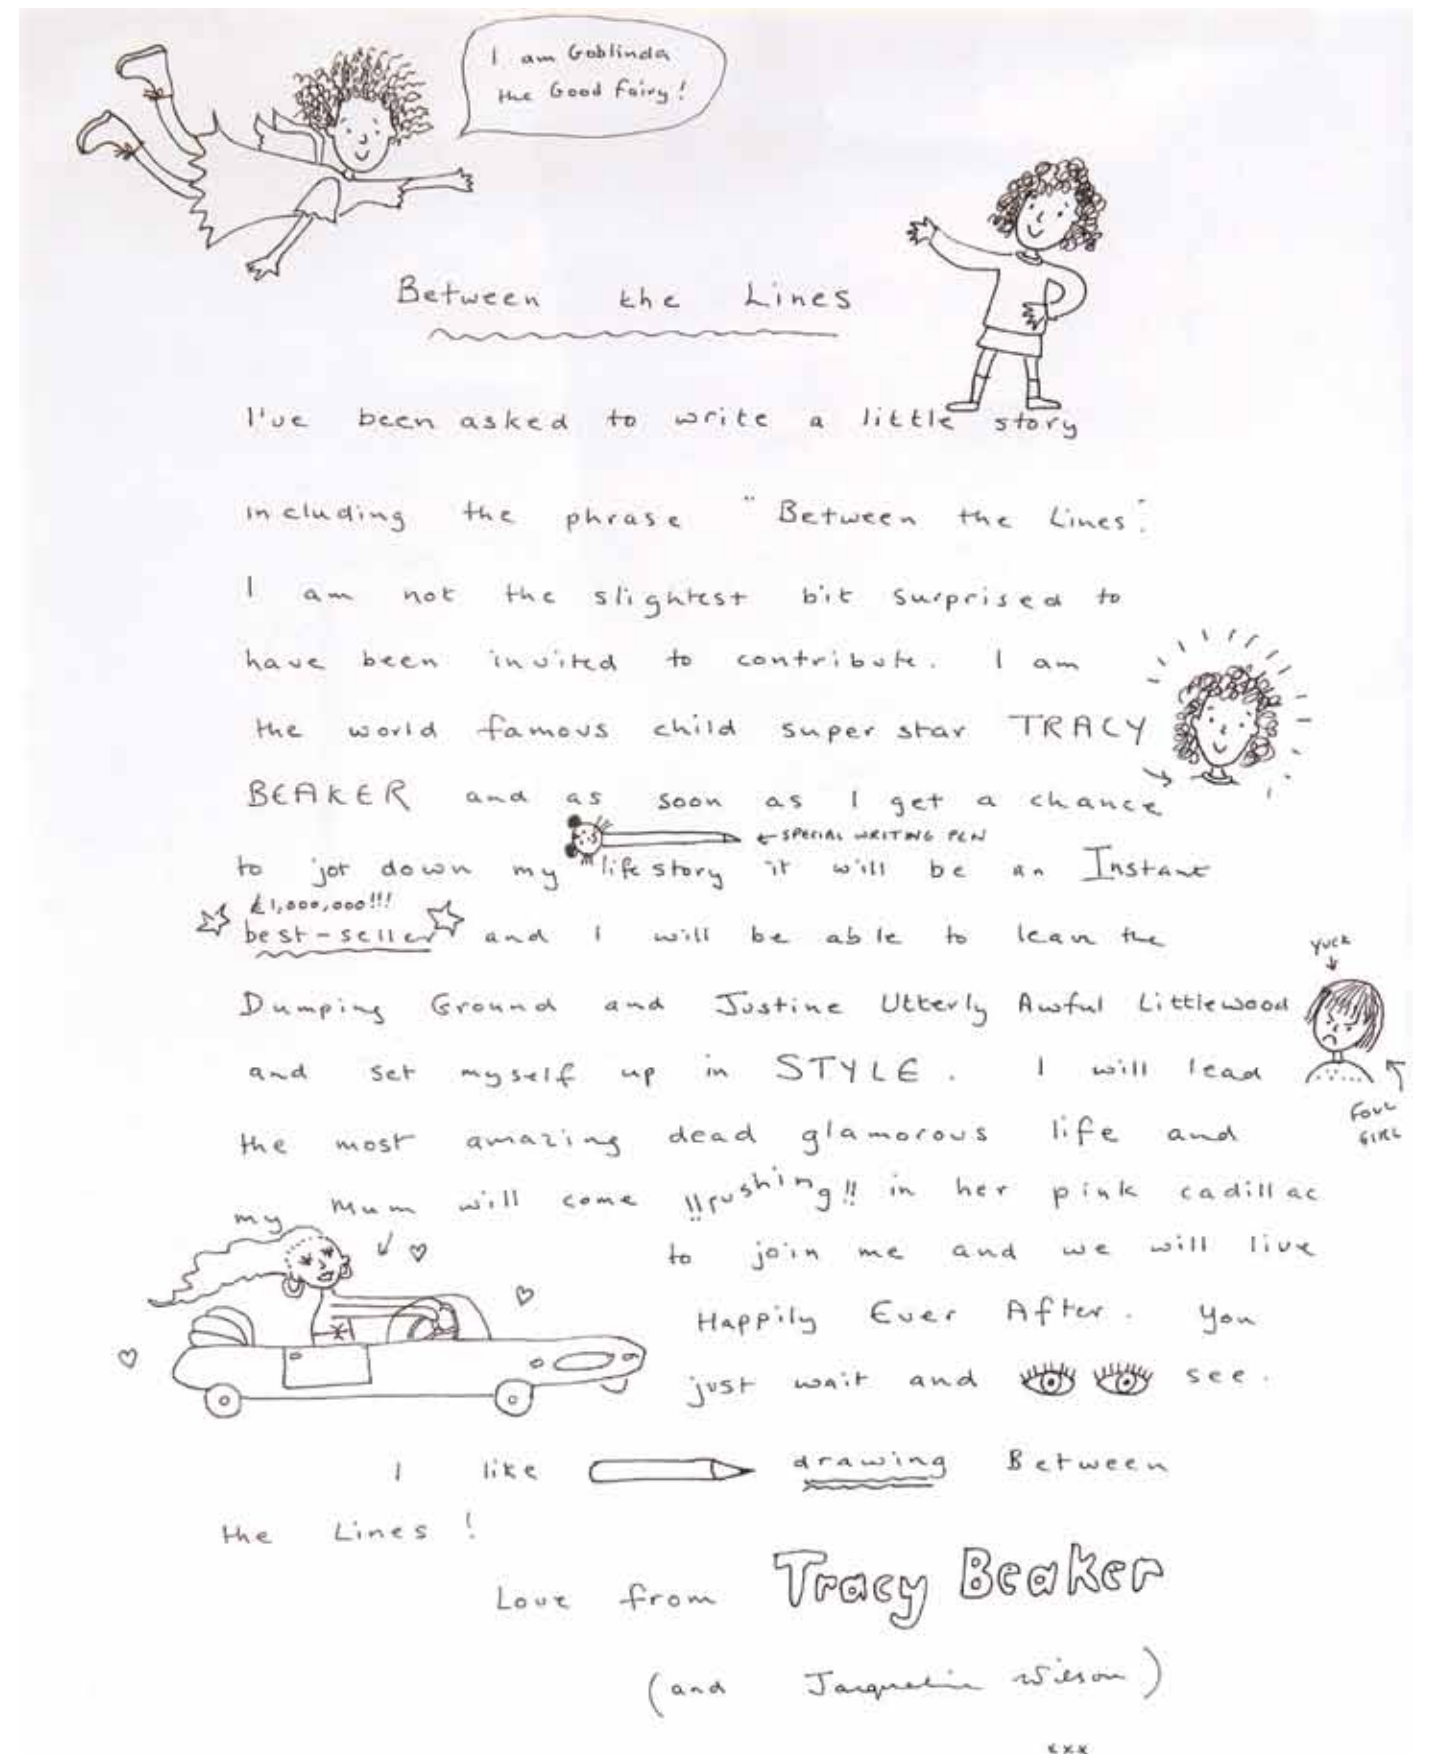 I am Goblinda
the Good Fairy!
Between the Lines
I've been asked to write a little story
including the phrase "Between the Lines".
I am not the slightest bit surprised to
have been invited to contribute. I am
the world famous child super star TRACY
BEAKER and as soon as I get a chance
← SPECIAL WRITING PEN
to jot down my life story it will be an Instant
£1,000,000!!!
best-seller and I will be able to leave the
YUCK
Dumping Ground and Justine Utterly Awful Littlewood
and set myself up in STYLE. I will lead
FOUL
GIRL
the most amazing dead glamorous life and
my Mum will come !!rushing!! in her pink cadillac
to join me and we will live
Happily Ever After. You
just wait and see.
I like drawing Between
the Lines!
Love from Tracy Beaker
(and Jacqueline Wilson)
xxx